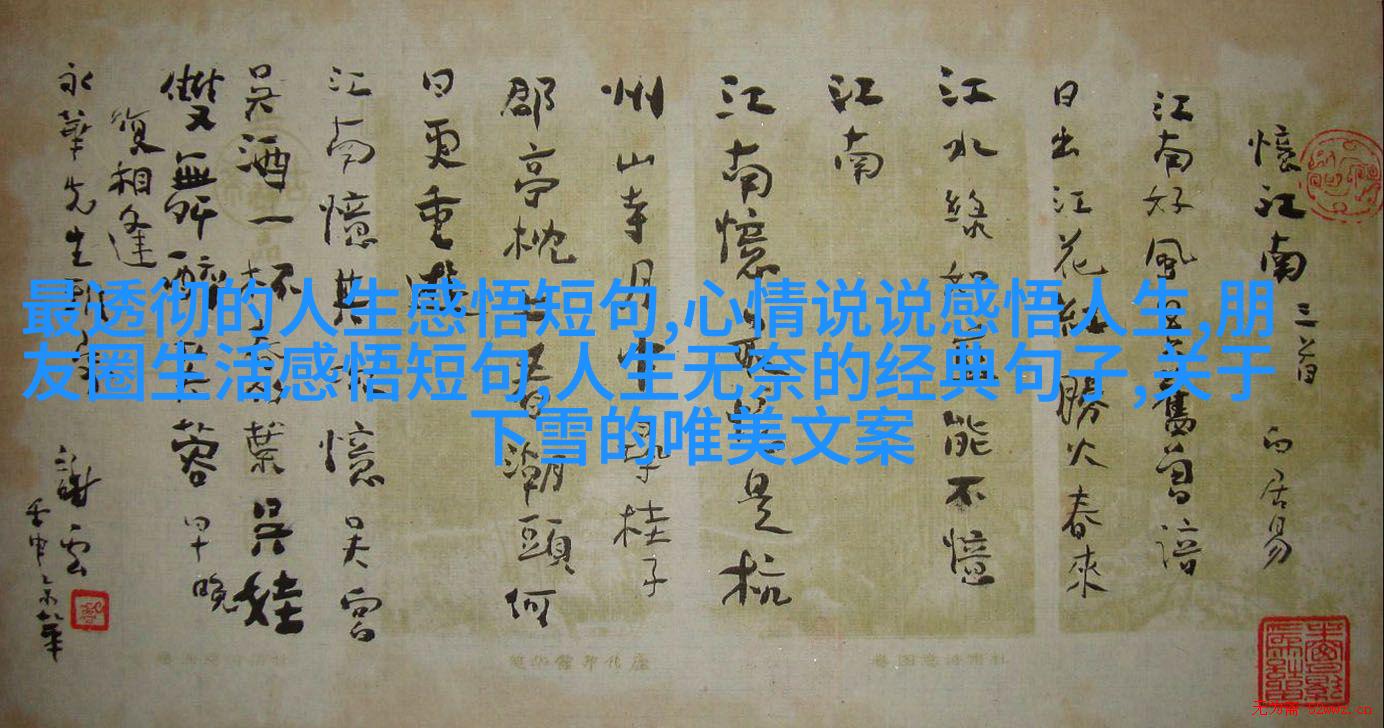 憶江南 三首 白居易
江南好風景舊曾諳
日出江花紅勝火春來
江水綠如藍能不憶
江南
江南憶最憶是杭
州山寺月中尋桂子
郡亭枕上看潮頭何
日更重遊
江南憶其次憶吳宮
吳酒一杯春竹葉吳娃
雙舞醉芙蓉早晚
復相逢
永華先生
謝雲
最透彻的人生感悟短句,心情说说感悟人生,朋
友圈生活感悟短句,人生无奈的经典句子,关于
下雪的唯美文案